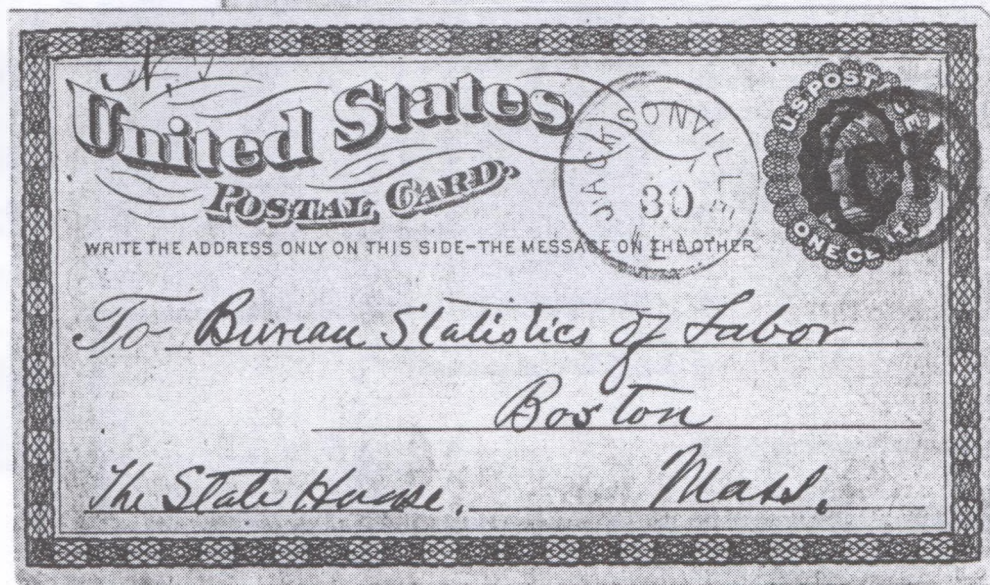 United States
POSTAL CARD.
JACKSONVILLE
30
U.S. POST
ONE CENT.
WRITE THE ADDRESS ONLY ON THIS SIDE-THE MESSAGE ON THE OTHER
To Bureau Statistics of Labor
Boston
The State House. Mass.